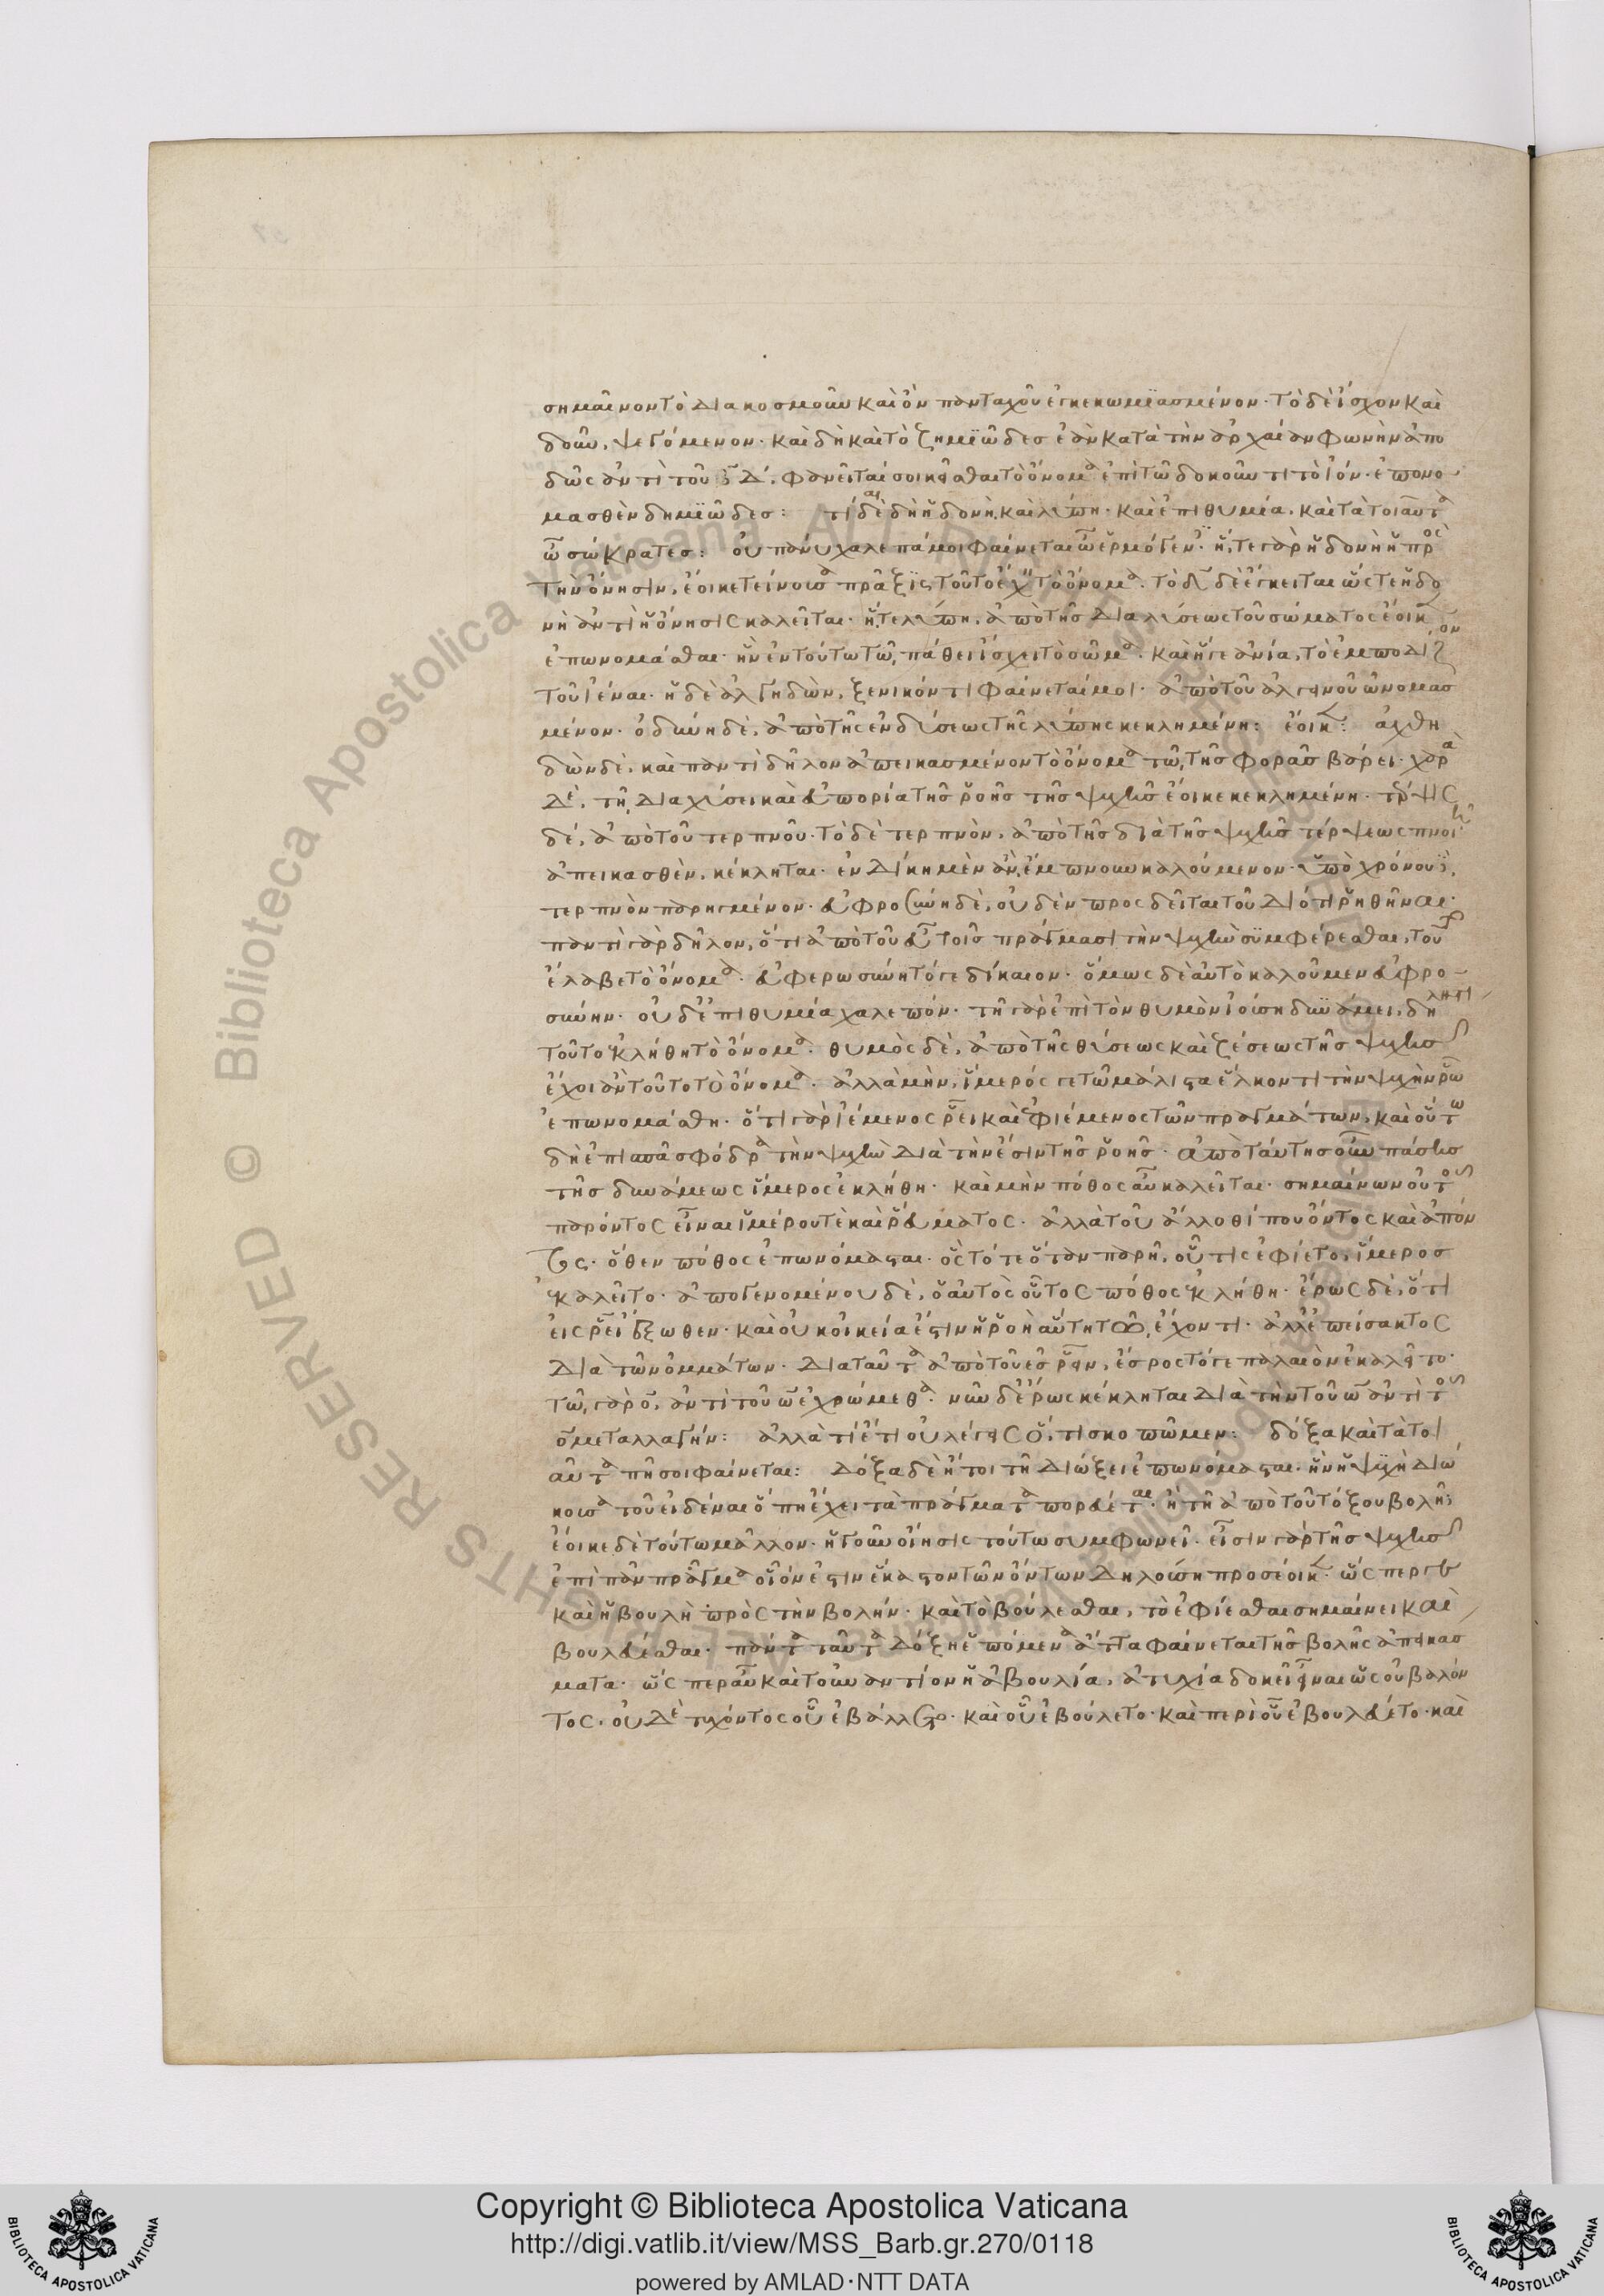 σημαῖνον τὸ διακοσμοῦν καὶ ὂν πανταχοῦ ἐγκεκωμϊασμένον· τὸ δὲ ἴσχον καὶ
δοῦν, ψεγόμενον· καὶ δὴ καὶ τὸ ζημϊῶδες ἐὰν κατὰ τὴν ἀρχαίαν φωνὴν ἀπο
δῶς ἀντὶ τοῦ ζ̄ δ̄, φανεῖταί σοι κεῖσθαι τὸ ὄνομα ἐπὶ τῶ δοκοῦντι τὸ ἰόν· ἐπονο
μασθὲν δημϊῶδες: τί δαὶ δὴ ἡδονὴ, καὶ λύπη· καὶ ἐπιθυμία, καὶ τὰ τοιαῦτα
ὦ σώκρατες: οὐ πάνυ χαλεπά μοι φαίνεται ὦ ἑρμόγενες· ἥ, τε γὰρ ἡδονὴ ἡ πρὸς
τὴν ὄνησιν, ἔοικε τείνουσα πρᾶξϊς τοῦτο ἔχειν τὸ ὄνομα. τὸ δ̄ δὲ ἔγκειται ὥστε ἡδο
νὴ ἀντὶ ἡόνησις καλεῖται· ἥ, τε λύπη, ἀπὸ τῆς διαλύσεως τοῦ σώματος ἔοικεν
ἐπωνομάσθαι· ἣν ἐν τούτω τῶ, πάθει ἴσχει τὸ σῶμα. καὶ ἥ γε ἀνία, τὸ ἐμποδίζον
τοῦ ἰέναι· ἡ δὲ ἀλγηδὼν, ξενικόν τι φαίνεταί μοι· ἀπὸ τοῦ ἀλγεινοῦ ὠνομασ
μένον· ὀδύνη δὲ, ἀπὸ τῆς ἐνδύσεως τῆς λύπης κεκλημένη: ἔοικεν: ἀχθη
δὼν δὲ, καὶ παντὶ δῆλον ἀπεικασμένον τὸ ὄνομα τῶ, τῆς φορᾶς βάρει· χαρὰ
δὲ, τῆ, διαχύσει καὶ εὐπορία τῆς ῥοῆς τῆς ψυχῆς ἔοικε κεκλημένη· τέρψις
δέ, ἀπὸ τοῦ τερπνοῦ· τὸ δὲ τερπνὸν, ἀπὸ τῆς διὰ τῆς ψυχῆς τέρψεως πνοῆ
ἀπεικασθὲν, κέκληται· ἐν δίκη μὲν ἂν, ἔμπνουν καλούμενον· ὑπὸ χρόνου δὲ,
τερπνὸν παρηγμένον· εὐφροσύνη δὲ, οὐδὲν προσδεῖται τοῦ διότι ῥηθῆναι·
παντὶ γὰρ δῆλον, ὅτι ἀπὸ τοῦ εὖ τοῖς πράγμασι τὴν ψυχὴν ξυμφέρεσθαι, τοῦτο
ἔλαβε τὸ ὄνομα· εὐφερωσύνη τό γε δίκαιον· ὅμως δὲ αὐτὸ καλοῦμεν εὐφρο-
σύνην· οὐδ' ἐπιθυμία χαλεπόν· τῆ γὰρ ἐπὶ τὸν θυμὸν ἰούση δυνάμει, δηλονότι
τοῦτο ἐκλήθη τὸ ὄνομα· θυμὸς δὲ, ἀπὸ τῆς θύσεως καὶ ζέσεως τῆς ψυχῆς
ἔχοι ἂν τοῦτο τὸ ὄνομα· ἀλλὰ μὴν, ἵμερός γε τῶ μάλιστα ἕλκοντι τὴν ψυχὴν ῥῶ
ἐπωνομάσθη· ὅτι γὰρ ἱέμενος ῥεῖ καὶ ἐφιέμενος τῶν πραγμάτων, καὶ οὕτω
δὴ ἐπισπᾶ σφόδρα τὴν ψυχὴν διὰ τὴν ἕσιν τῆς ῥοῆς· ἀπὸ ταύτης οὖν πάσης
τῆς δυνάμεως ἵμερος ἐκλήθη· καὶ μὴν πόθος αὖ καλεῖται· σημαίνων οὐ τοῦ
παρόντος εἶναι ἱμέρου τὲ καὶ ῥεύματος· ἀλλὰ τοῦ ἄλλοθί που ὄντος καὶ ἀπόν
τος· ὅθεν πόθος ἐπωνόμασται· ὃς τότε ὅταν παρῆ, οὗ τις ἐφίετο, ἵμερος
ἐκαλεῖτο· ἀπογενομένου δὲ, ὁ αὐτὸς οὗτος πόθος ἐκλήθη· ἔρως δὲ, ὅτι
εἰσρεῖ ἔξωθεν· καὶ οὐκ οἰκεία ἐστὶν ἡ ῥοὴ αὕτη τῶ, ἔχοντι· ἀλλ' ἐπείσακτος
διὰ τῶν ὀμμάτων· διὰ ταῦτα ἀπὸ τοῦ ἐσρεῖν, ἔσρος τό γε παλαιὸν ἐκαλεῖτο·
τῶ, γὰρ ο̄, ἀντὶ τοῦ ω̄ ἐχρώμεθα· νῦν δ' ἔρως κέκληται διὰ τὴν τοῦ ω̄ ἀντὶ τοῦ
ο̄ μεταλλαγήν: ἀλλὰ τί ἔτι οὐ λέγεις ὅ, τι σκοπῶμεν: δόξα καὶ τὰ τοι
αῦτα πῆ σοι φαίνεται: δόξα δὲ ἤτοι τῆ διώξει ἐπωνόμασται· ἣν ἡ ψυχὴ διώ
κουσα τοῦ εἰδέναι ὅπη ἔχει τὰ πράγματα πορεύεται· ἢ τῆ ἀπὸ τοῦ τόξου βολῆ;
ἔοικε δὲ τούτω μᾶλλον· ἡ γοῦν οἴησις τούτω συμφωνεῖ· εἶσιν γὰρ τῆς ψυχῆς
ἐπὶ πᾶν πρᾶγμα οἷόν ἐστιν ἕκαστον τῶν ὄντων δηλούση προσέοικεν· ὥσπερ γε
καὶ ἡ βουλὴ πρὸς τὴν βολήν· καὶ τὸ βούλεσθαι, τὸ ἐφίεσθαι σημαίνει καὶ
βουλεύεσθαι· πάντα ταῦτα δόξη ἑπόμενα ἄττα φαίνεται τῆς βολῆς ἀπεικάσ
ματα· ὥσπερ αὖ καὶ τοὐναντίον ἡ ἀβουλία, ἀτυχία δοκεῖ εἶναι ὡς οὐ βαλόν
τος, οὐδὲ τυχόντος οὗ ἔβαλλεν· καὶ οὗ ἐβούλετο· καὶ περὶ οὗ ἐβουλεύετο· καὶ
Copyright © Biblioteca Apostolica Vaticana
http://digi.vatlib.it/view/MSS_Barb.gr.270/0118
powered by AMLAD·NTT DATA